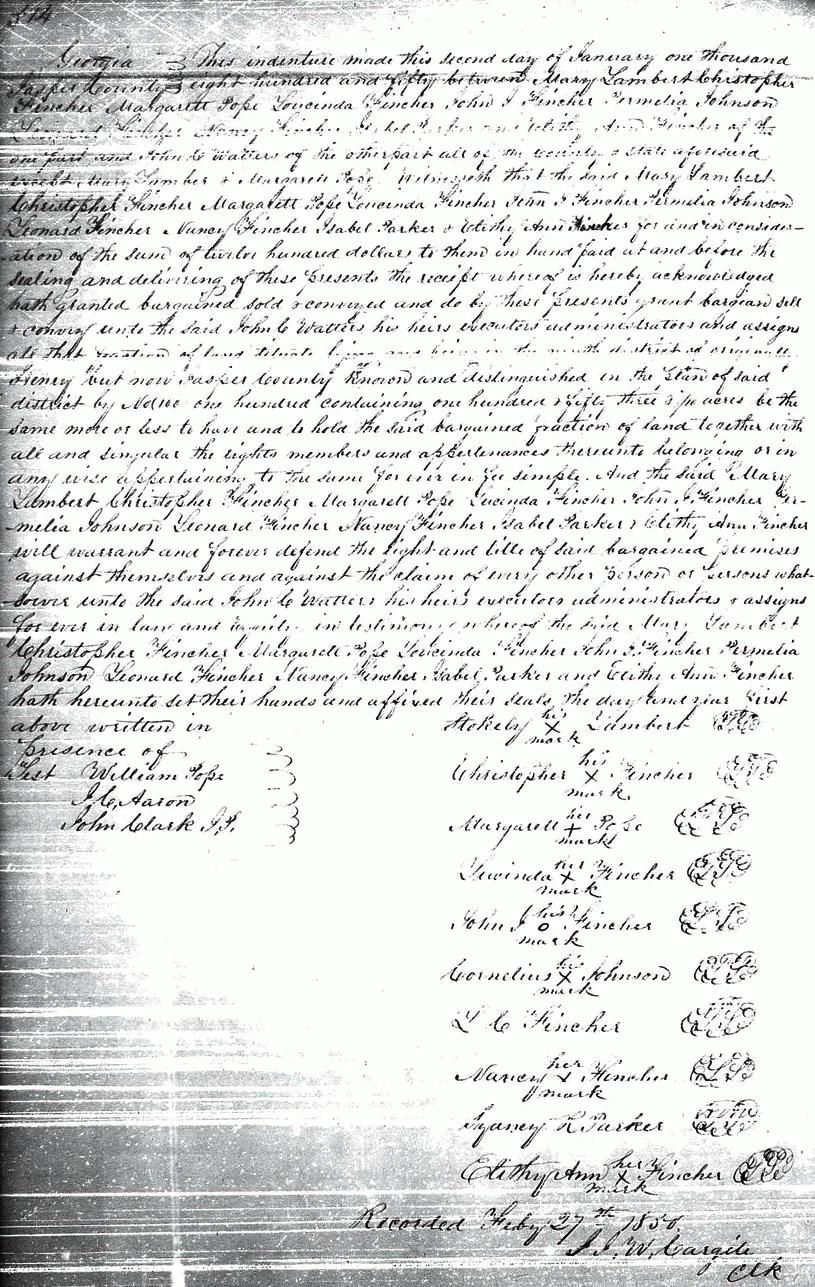 Georgia This indenture made this second day of January one thousand
Jasper County eight hundred and fifty between Mary Lambert Christopher
Fincher Margarett Pope Loucinda Fincher John J Fincher Permelia Johnson
Leonard Fincher Nancy Fincher Isabel Parker and Ann Fincher of the
one part and John C Watters of the other part all of the County & State aforesaid
except Mary Lamber & Margarett Pope. Witnesseth that the said Mary Lambert
Christopher Fincher Margarett Pope Loucinda Fincher John J Fincher Permelia Johnson
Leonard Fincher Nancy Fincher Isabel Parker & Elithy Ann Fincher for and in consider-
-ation of the sum of twelve hundred dollars to them in hand paid at and before the
sealing and delivering of these presents the receipt whereof is hereby acknowledged
hath granted bargained sold & conveyed and do by these presents grant bargean sell
& convey unto the said John C Watters his heirs executors administrators and assigns
all that of land being in the district of originally
Henry but now Jasper County Known and distinguished in the plan of said
district by No 100 one hundred containing one hundred & fifty three acres be the
same more or less to have and to hold the said bargained fraction of land together with
all and singular the rights members and appertenances thereunto belonging or in
any wise appertaining to the same for ever in fee simple. And the said Mary
Lambert Christopher Fincher Margarett Pope Lucinda Fincher John J Fincher Per-
-melia Johnson Leonard Fincher Nancy Fincher Isabel Parker & Elithy Ann Fincher
will warrant and forever defend the right and title of said bargained premises
against themselves and against the claim of every other person or persons what-
-soever unto the said John C Watters his heirs executors administrators & assigns
for ever in law and equity, in testimony whereof the said Mary Lambert
Christopher Fincher Margarett Pope Loucinda Fincher John J Fincher Permelia
Johnson Leonard Fincher Nancy Fincher Isabel Parker and Elithy Ann Fincher
hath hereunto set their hands and affixed their seals the day and year first
above written in
presence of
Test William Pope
J. C. Aaron
John Clark J.P.
his
Stokely X Lambert
mark
his
Christopher X Fincher
mark
her
Margarett + Pope
mark
her
Lucinda X Fincher
mark
his
John J o Fincher
mark
his
Cornelius X Johnson
mark
L C Fincher
her
Nancy X Fincher
mark
Parker
her
Elithy Ann X Fincher
mark
Recorded Feby 27th 1850.
J. W. Cargile
Clk